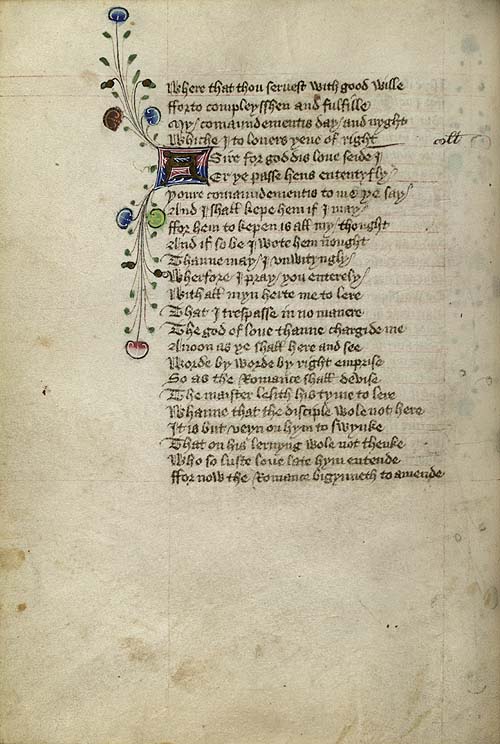 Where that thou seruest with good wille
fforto compleysshen and fulfille
My comaundementis day and nyght
Whiche I to louers yeue of right coll
A Sire for goddis loue seide I
Er ye passe hens ententyfly
youre comaundementis to me ye say
And I shall kepe hem if I may
ffor hem to kepen is all my thought
And if so be I wote hem nought
Thanne may I vnwityngly
Wherfore I pray you enterely
With all myn herte me to lere
That I trespasse in no manere
The god of loue thanne chargide me
Anoon as ye shall here and see
Worde by worde by right emprise
So as the Romance shall devise
The maister lesith his tyme to lere
Whanne that the disciple wole not here
It is but veyn on hym to swynke
That on his lernyng wole not thenke
Who so luste loue late hym entende
ffor now the Romance bigynneth to amende